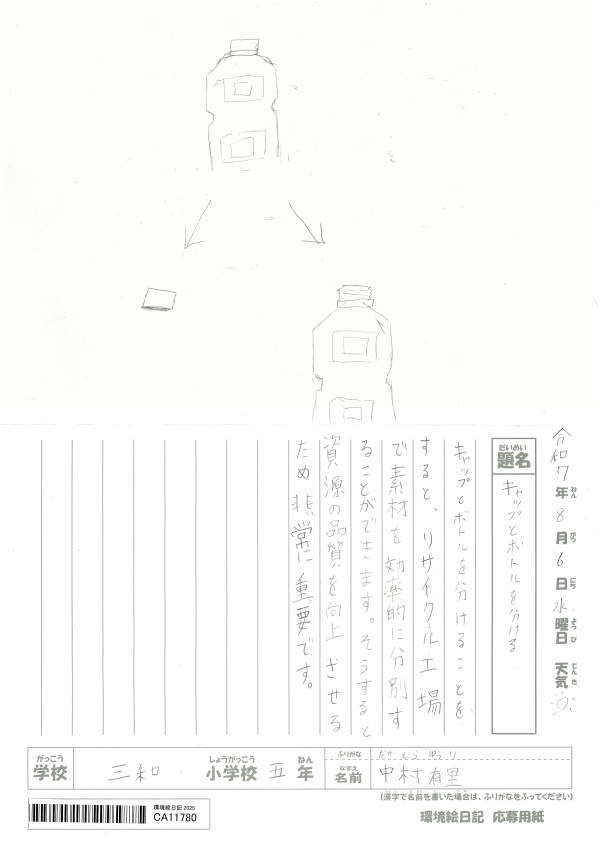 令和7年8月6日水曜日 天気
ねん がつ にち ようび てんき
だいめい
題名
キャップとボトルを分ける
キャップとボトルを分けることを
すると、リサイクル工場
で素材を効率的に分別す
ることができます。そうすると
資源の品質を向上させる
ため非常に重要です。
がっこう しょうがっこう ねん
学校 三和 小学校 五年
ふりがな なか むら ゆうり
なまえ
名前 中村有里
(漢字で名前を書いた場合は、ふりがなをふってください)
環境絵日記 2025
CA11780
環境絵日記 応募用紙